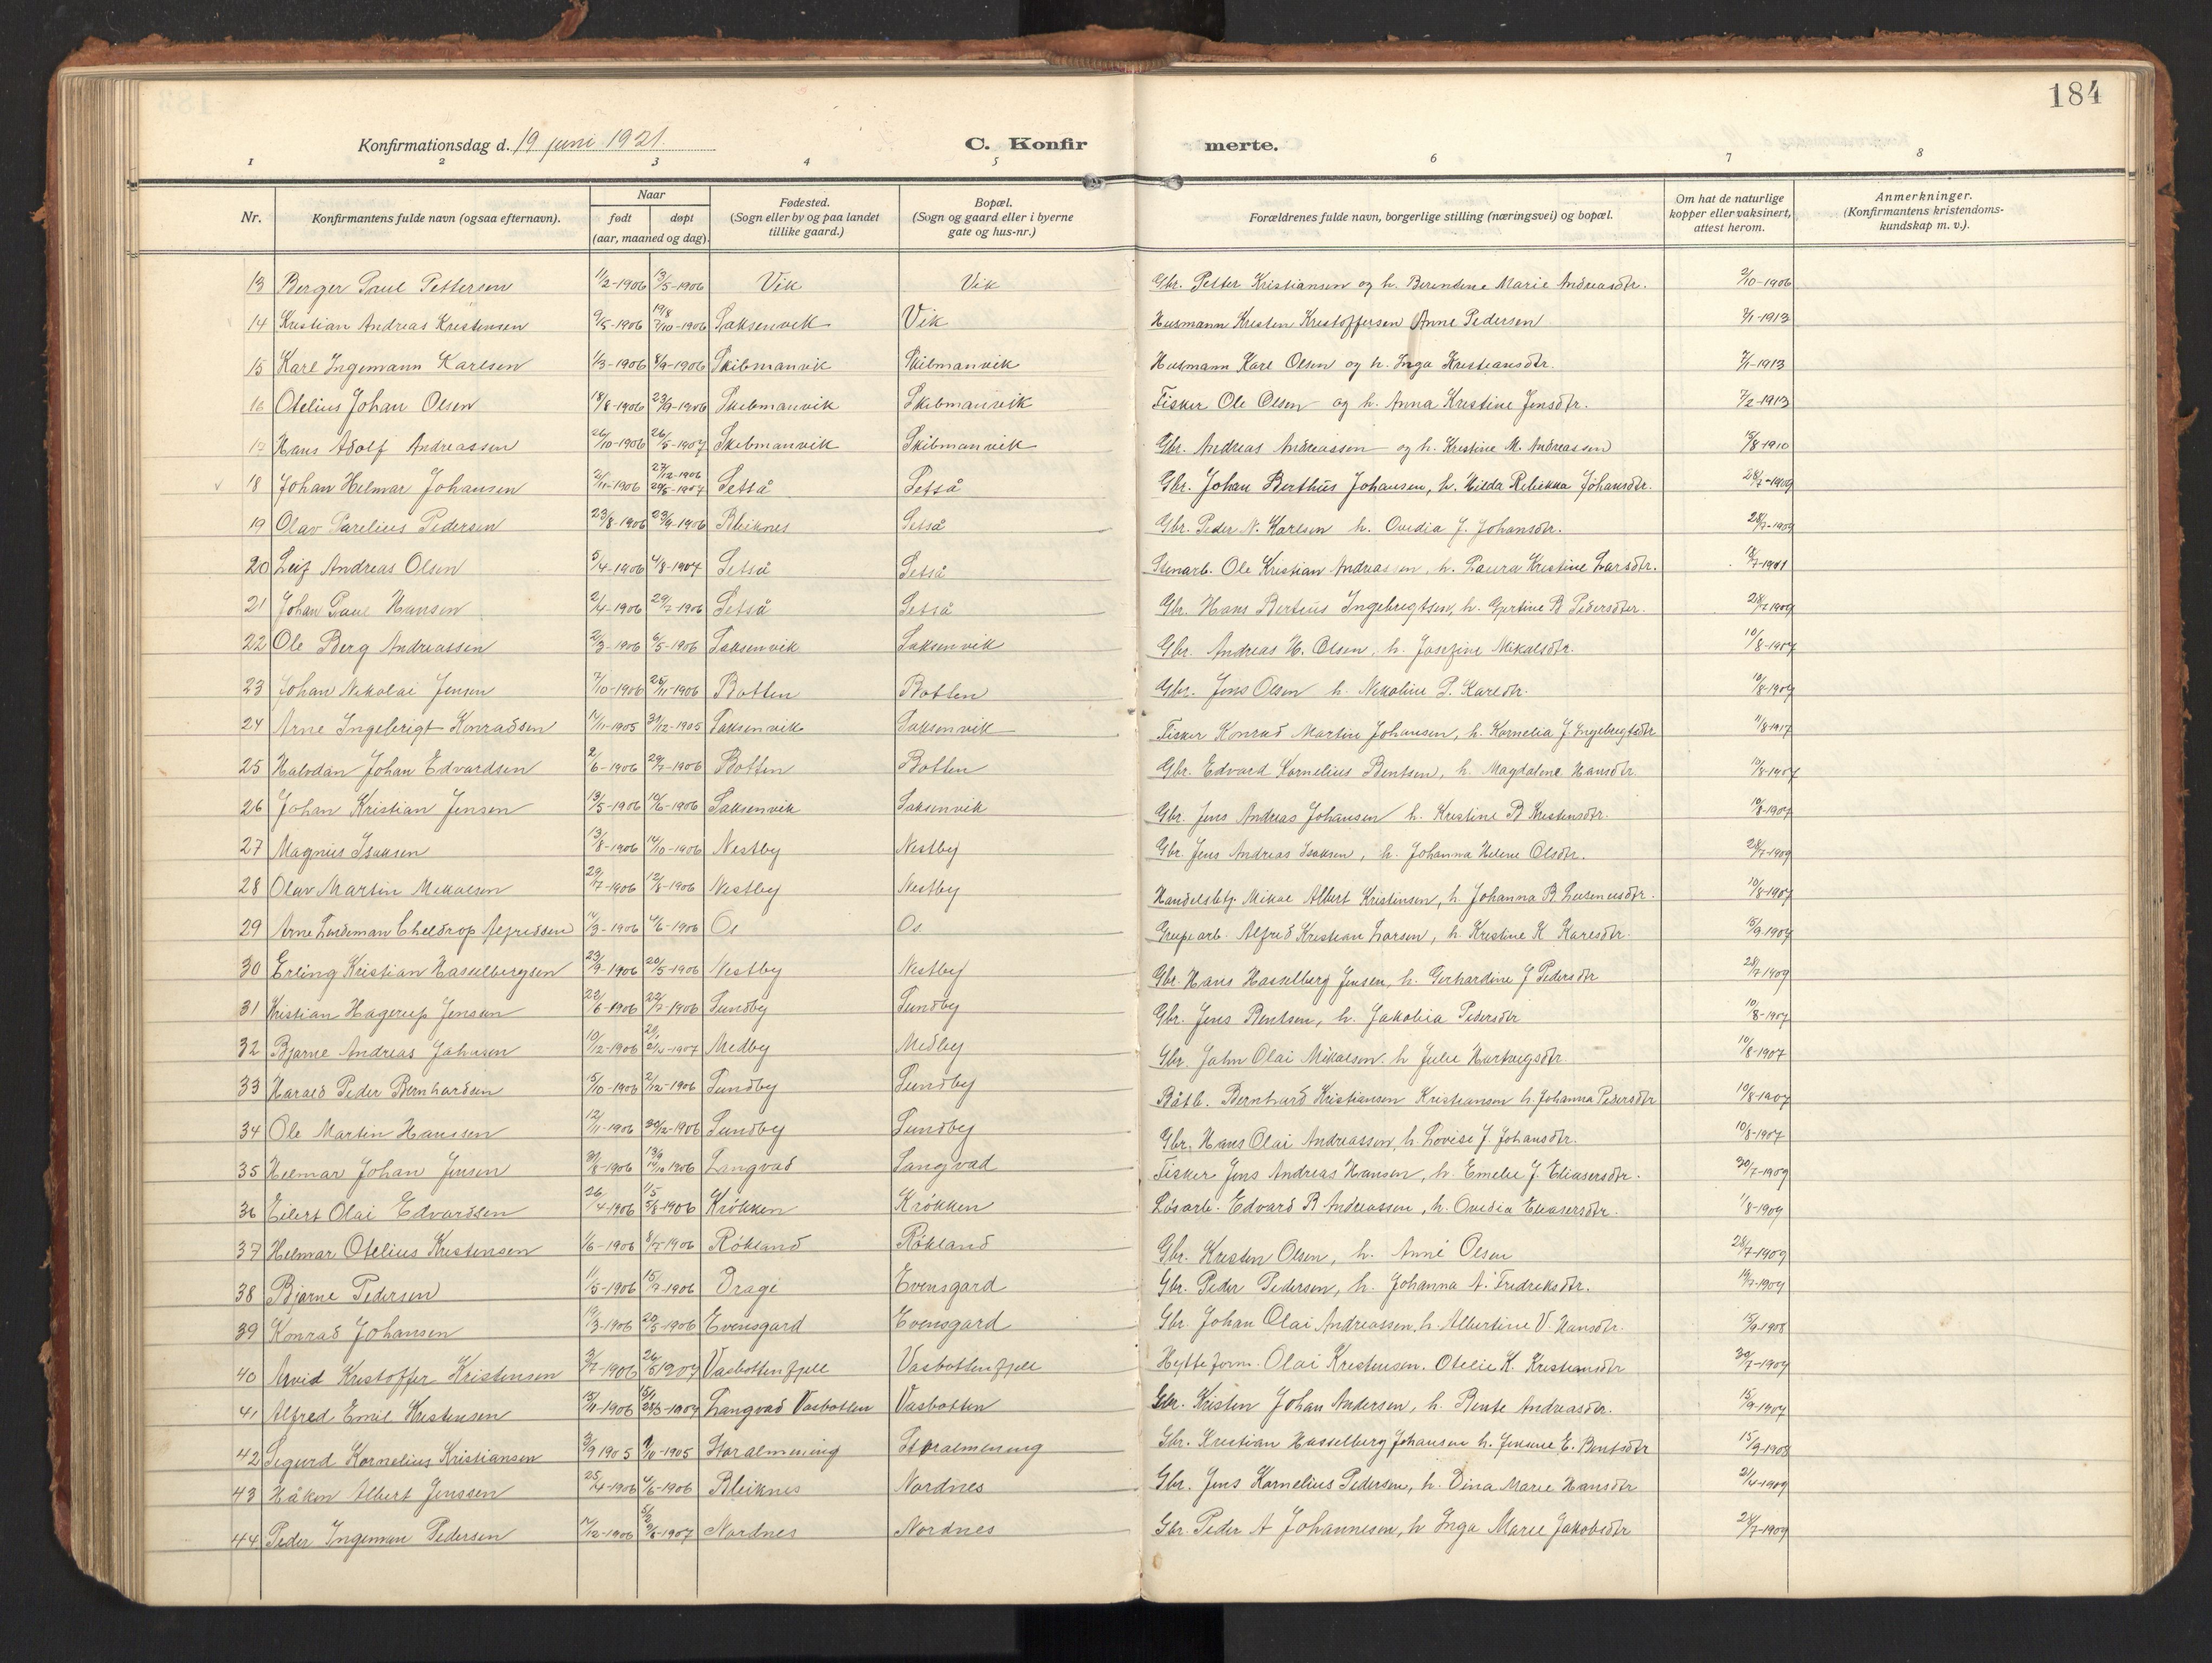 184
Konfirmationsdag d. 19 juni 1921. C. Konfirmerte.
1 2 3 4 5 6 7 8
Nr. Konfirmantens fulde navn (ogsaa efternavn). Naar født døpt (aar, maaned og dag). Fødested. (Sogn eller by og paa landet tillike gaard.) Bopæl. (Sogn og gaard eller i byerne gate og hus-nr.) Forældrenes fulde navn, borgerlige stilling (næringsvei) og bopæl. Om hat de naturlige kopper eller vaksinert, attest herom. Anmerkninger. (Konfirmantens kristendoms-kundskap m. v.).
13 Berger Paul Pettersen 11/2-1906 13/5-1906 Vik Vik Gbr. Petter Kristiansen og h. Berendine Marie Andreasdtr. 9/10-1906
14 Kristian Andreas Kristensen 9/5-1906 19/8 7/10-1906 Saksenvik Vik Husmann Kristen Kristoffersen Anne Pedersen 7/1-1913
15 Karl Ingemann Karlsen 1/3-1906 8/9-1906 Skibmanvik Skibmanvik Husmann Karl Olsen og h. Inga Kristiansdtr. 7/1-1913
16 Otelius Johan Olsen 18/8-1906 23/9-1906 Skibmanvik Skibmanvik Fisker Ole Olsen og h. Anna Kristine Jensdtr. 7/2-1913
17 Hans Adolf Andreassen 26/10-1906 26/5-1907 Skibmanvik Skibmanvik Gbr. Andreas Andreassen og h. Kristine M. Andreassen 15/8-1910
18 Johan Helmar Johansen 2/11-1906 27/12-1906 Setså Setså Gbr. Johan Berthus Johansen, h. Hilda Rebekka Johansdtr. 28/7-1909
19 Olav Parelius Pedersen 23/8-1906 23/9-1906 Bleiknes Setså Gbr. Peder N. Karlsen h. Ovedia J. Johansdtr. 28/7-1909
20 Leif Andreas Olsen 5/4-1906 4/8-1907 Setså Setså Stenarb. Ole Kristian Andreassen, h. Laura Kristine Larsdtr.
21 Johan Paul Hansen 2/4-1906 29/7-1906 Setså Setså Gbr. Hans Bertius Ingebrigtsen, h. Gjertine B Pedersdtr. 28/7-1909
22 Ole Berg Andreassen 2/3-1906 6/5-1906 Saksenvik Saksenvik Gbr. Andreas H. Olsen, h. Josefine Mikalsdtr. 10/8-1907
23 Johan Nikolai Jensen 7/10-1906 25/11-1906 Botten Botten Gbr. Jens Olsen h. Nikoline P. Karlsdtr. 10/8-1907
24 Arne Ingebrigt Konradsen 14/11-1905 31/12-1905 Saksenvik Saksenvik Fisker Konrad Martin Johansen, h. Kornelia J. Ingebrigtsdtr 11/8-1917
25 Halvdan Johan Edvardsen 2/6-1906 29/7-1906 Botten Botten Gbr. Edvard Kornelius Bentsen, h. Magdalene Hansdtr. 10/8-1907
26 Johan Kristian Jensen 13/5-1906 10/6-1906 Saksenvik Saksenvik Gbr. Jens Andreas Johansen h. Kristine B Kristensdtr. 10/8-1907
27 Magnus Isaksen 13/8-1906 14/10-1906 Nestby Nestby Gbr. Jens Andreas Isaksen, h. Johanna Helene Olsdtr. 28/7-1909
28 Olav Martin Mikalsen 29/7-1906 12/8-1906 Nestby Nestby Handelsbetj. Mikal Albert Kristensen, h. Johanna B 10/8-1907
29 Arne Lindeman Cheldrop Alfredsen 14/3-1906 4/6-1906 Os Os. Alfred Kristian Larsen, h. Kristine K Karlsdtr. 15/9-1907
30 Erling Kristian Hasselbergsen 23/9-1906 20/5-1906 Nestby Nestby Gbr. Hans Hasselberg Jensen, h. Gerhardine J Pedersdtr 28/7-1909
31 Kristian Hagerup Jensen 22/6-1906 22/7-1906 Sundby Sundby Gbr. Jens Bentsen, h. Jakobia Pedersdtr 10/8-1907
32 Bjarne Andreas Johnsen 10/12-1906 Medby Medby Gbr. John Olai Mikalsen. h Julie Hartvigsdtr. 10/8-1907
33 Harald Peder Bernhardsen 15/10-1906 2/12-1906 Sundby Sundby Båtb. Bernhard Kristiansen Kristiansen h. Johanna Pedersdtr 10/8-1907
34 Ole Martin Hanssen 12/11-1906 30/12-1906 Sundby Sundby Gbr. Hans Olai Andreassen, h. Lovise J. Johansdtr. 10/8-1907
35 Helmar Johan Jensen 31/8-1906 Langvad Langvad Fisker Jens Andreas Hansen, h. Emelie J. Eliasersdtr. 30/7-1909
36 Eilert Olai Edvardsen 26/4-1906 1/5 5/8-1906 Krökken Krökken Løsarb. Edvard B Andreassen, h. Ovedia Eliasersdtr. 11/8-1909
37 Helmar Otelius Kristensen 1/6-1906 8/7-1906 Rökland Rökland Gbr. Kristen Olsen, h. Anne Olsen 28/7-1909
38 Bjarne Pedersen 11/5-1906 15/7-1906 Dragi Evensgard Gbr. Peder Pedersen, h. Johanna A. Fredriksdtr.
39 Konrad Johansen 19/3-1906 20/5-1906 Evensgard Evensgard Gbr. Johan Olai Andreassen, h. Albertine V. Hansdtr. 15/9-1908
40 Arvid Kristoffer Kristensen 3/7-1906 26/5 1907 Vasbottenfjell Vasbottenfjell Hytteform. Olai Kristensen. Otelie K. Kristiansdtr 30/7-1907
41 Alfred Emil Kristensen 13/11-1906 Langvad Vasbotten Vasbotten Gbr. Kristen Johan Andersen, h. Bente Andreasdtr. 15/9-1907
42 Sigurd Kornelius Kristiansen 3/9 1905 1/10-1905 Storalmening Storalmening Gbr. Kristian Hasselberg Johansen h. Jensine E. Bentsdtr 15/9-1908
43 Håkon Albert Jenssen 25/4-1906 4/6-1906 Bleiknes Nordnes Gbr. Jens Kornelius Pedersen, h. Dina Marie Hansdtr 21/4-1909
44 Peder Ingeman Pedersen 17/12-1906 Nordnes Nordnes Gbr. Peder A Johannesen, h Inga Marie Jakobsdtr